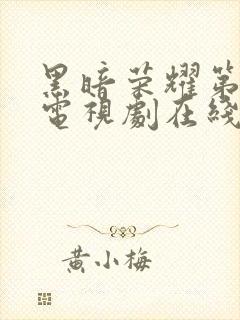 黑暗荣耀第
電視劇在綫
黄小梅